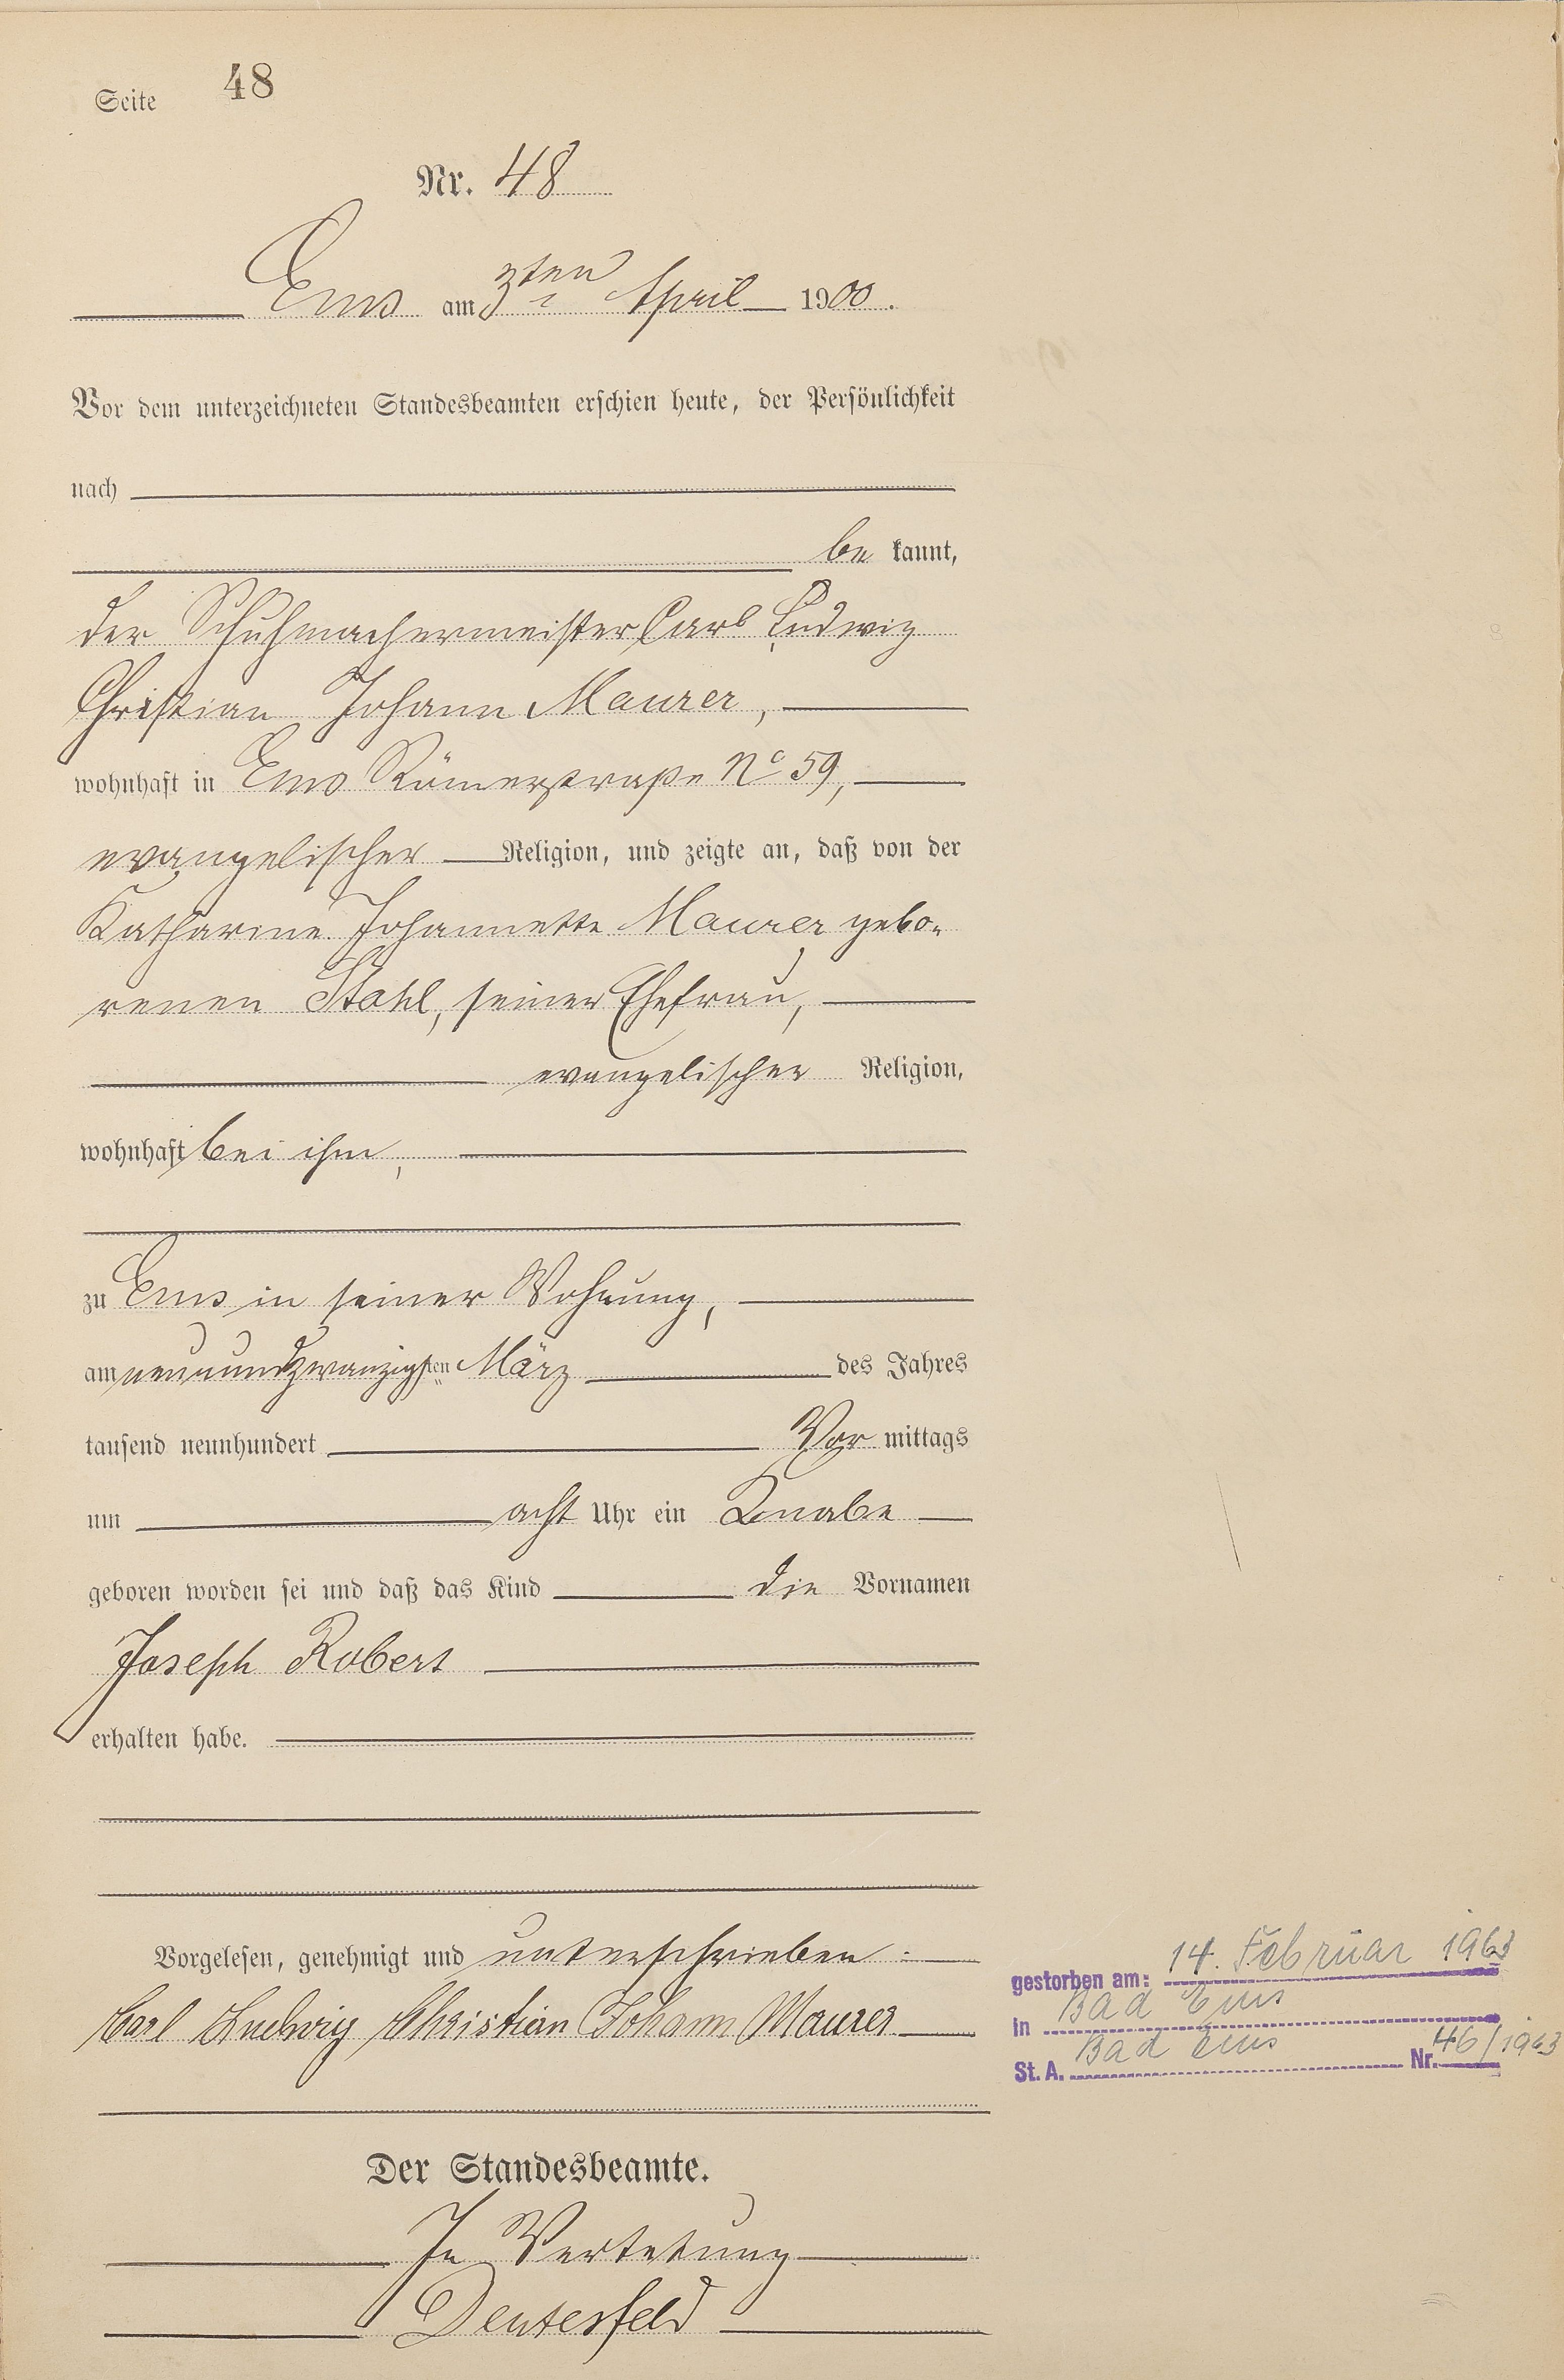 Seite 48
Nr. 48
Ems am 3ten April 1900.
Vor dem unterzeichneten Standesbeamten erschien heute, der Persönlichkeit
nach
be kannt,
der Schuhmachermeister Carl Ludwig
Christian Johann Maurer,
wohnhaft in Ems Römerstraße No 59,
evangelischer Religion, und zeigte an, daß von der
Katharine Johannette Maurer gebo-
renen Stahl, seiner Ehefrau,
evangelischer Religion,
wohnhaft bei ihm,
zu Ems in seiner Wohnung,
am neunundzwanzigsten März des Jahres
tausend neunhundert Vor mittags
um acht Uhr ein Knabe
geboren worden sei und daß das Kind die Vornamen
Joseph Robert
erhalten habe.
Vorgelesen, genehmigt und unterschrieben:
Carl Ludwig Christian Johann Maurer
gestorben am: 14. Februar 1963
in Bad Ems
St. A. Bad Ems Nr. 46/1963
Der Standesbeamte.
In Vertetung
Deutesfeld